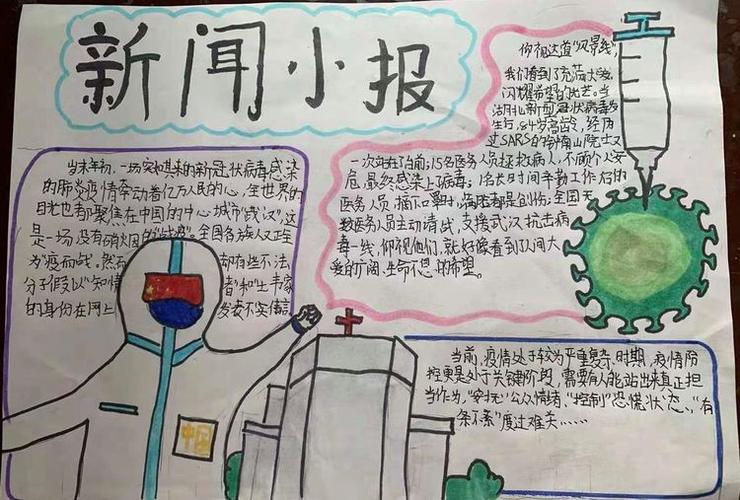 新闻小报
岁末年初，一场突如其来的新冠状病毒感染
的肺炎疫情牵动着亿万人民的心，全世界的
目光也都聚焦在中国的中心城市"武汉"，这
是一场没有硝烟的"战疫"。全国各族人又正生
为疫而战。然而 都有些不法
分子假以"知情 者"和"土专家
的身份在网上 发表不实传言
你视达道"风景线"，
我们看到了充满大爱，
闪耀希望的光芒。当
湖北新型冠状病毒发
生与，84岁高龄，经历
过SARS的钟南山院士又
一次站在了台前；15名医务人员拯救病人，不顾个人安
危，最终感染上病毒；1名长时间辛勤工作后的
医务人员，摘下口罩时，满脸都是创伤；全国无
数医务人员主动请战，支援武汉，抗击病
毒一线，仰视他们，就好像看到了人间大
爱的广阔，生命不息的希望。
当前，疫情处于较为严重复杂时期，疫情防
控更是处于关键阶段，需要有人能站出来真正担
当作为，"安抚"公众情绪、"控制"恐慌状态、"有
条不紊"度过难关……
中国